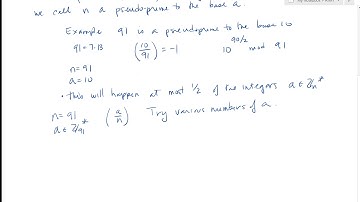 we call n a pseudo-prime to the base a.
Example 91 is a pseudoprime to the base 10
91 = 7·13 (10/91) = -1 10^90/2 mod 91
n = 91
a = 10
• this will happen at most 1/2 of the integers a ∈ ℤn*
n = 91
a ∈ ℤ91* (a/n) Try various numbers of a.